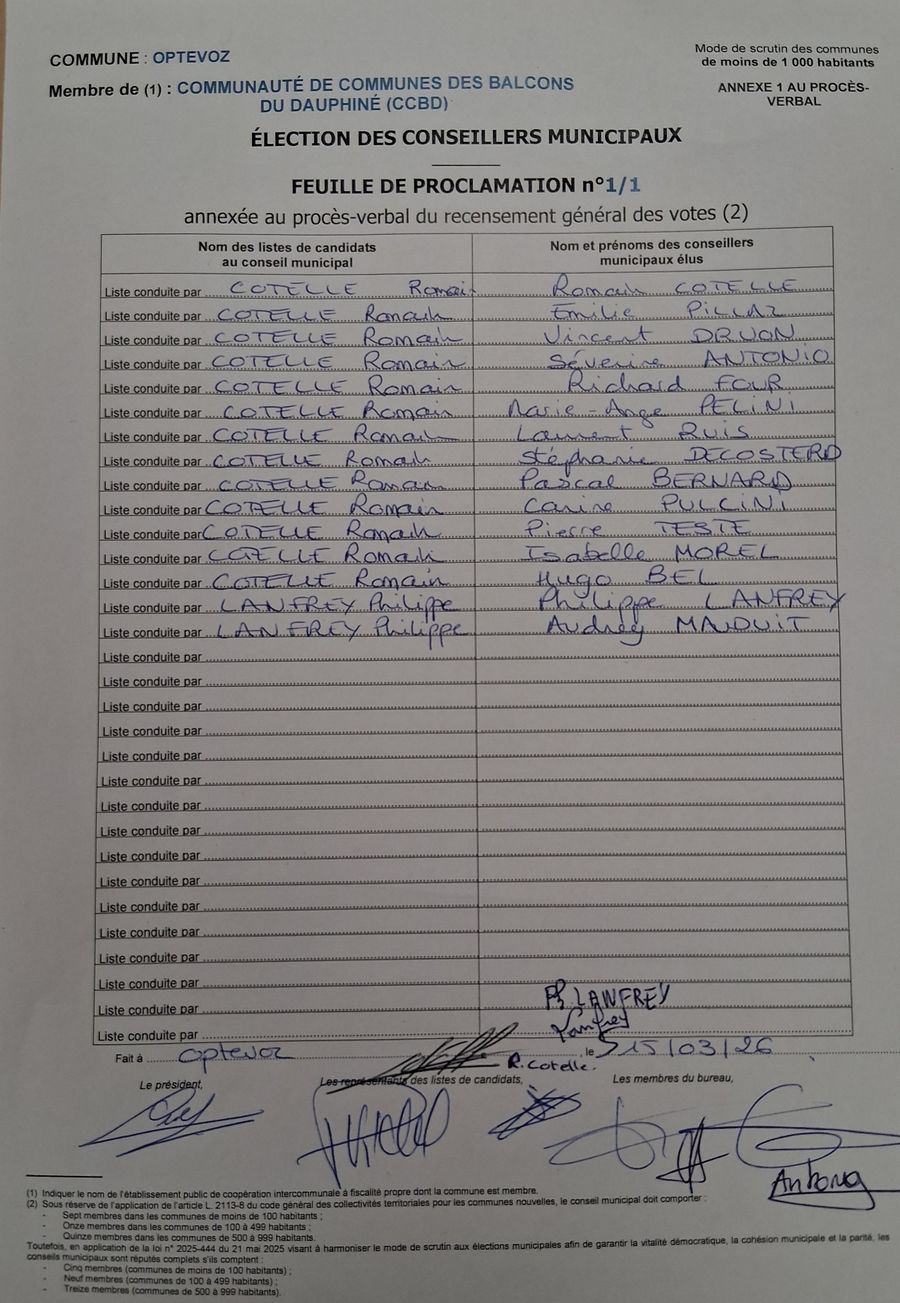 COMMUNE : OPTEVOZ
Mode de scrutin des communes
de moins de 1 000 habitants
Membre de (1) : COMMUNAUTÉ DE COMMUNES DES BALCONS
DU DAUPHINÉ (CCBD)
ANNEXE 1 AU PROCÈS-
VERBAL
ÉLECTION DES CONSEILLERS MUNICIPAUX
FEUILLE DE PROCLAMATION n°1/1
annexée au procès-verbal du recensement général des votes (2)
Nom des listes de candidats
au conseil municipal
Nom et prénoms des conseillers
municipaux élus
Liste conduite par COTELLE Romain Romain COTELLE
Liste conduite par COTELLE Romain Emilie PILLAZ
Liste conduite par COTELLE Romain Vincent DRUON
Liste conduite par COTELLE Romain Séverine ANTONIO
Liste conduite par COTELLE Romain Richard FOUR
Liste conduite par COTELLE Romain Marie-Ange PELINI
Liste conduite par COTELLE Romain Laurent RUIS
Liste conduite par COTELLE Romain Stéphanie DECOSTERD
Liste conduite par COTELLE Romain Pascal BERNARD
Liste conduite par COTELLE Romain Carine PULCINI
Liste conduite par COTELLE Romain Pierre TESTE
Liste conduite par COTELLE Romain Isabelle MOREL
Liste conduite par COTELLE Romain Hugo BEL
Liste conduite par LANFREY Philippe Philippe LANFREY
Liste conduite par LANFREY Philippe Audrey MAUDUIT
Liste conduite par
Liste conduite par
Liste conduite par
Liste conduite par
Liste conduite par
Liste conduite par
Liste conduite par
Liste conduite par
Liste conduite par
Liste conduite par
Liste conduite par
Liste conduite par
Liste conduite par
Liste conduite par
Liste conduite par LANFREY
Liste conduite par
Fait à Optevoz R. Cotelle. , le 15/03/26
Le président,
Les représentants des listes de candidats,
Les membres du bureau,
(1) Indiquer le nom de l'établissement public de coopération intercommunale à fiscalité propre dont la commune est membre.
(2) Sous réserve de l'application de l'article L. 2113-8 du code général des collectivités territoriales pour les communes nouvelles, le conseil municipal doit comporter :
- Sept membres dans les communes de moins de 100 habitants ;
- Onze membres dans les communes de 100 à 499 habitants ;
- Quinze membres dans les communes de 500 à 999 habitants.
Toutefois, en application de la loi n° 2025-444 du 21 mai 2025 visant à harmoniser le mode de scrutin aux élections municipales afin de garantir la vitalité démocratique, la cohésion municipale et la parité, les
conseils municipaux sont réputés complets s'ils comptent :
- Cinq membres (communes de moins de 100 habitants) ;
- Neuf membres (communes de 100 à 499 habitants) ;
- Treize membres (communes de 500 à 999 habitants).